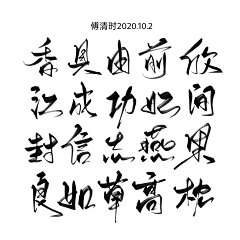 傅清时2020.10.2
香具由前欣
江成功妃间
封信志燕果
良如草高枕